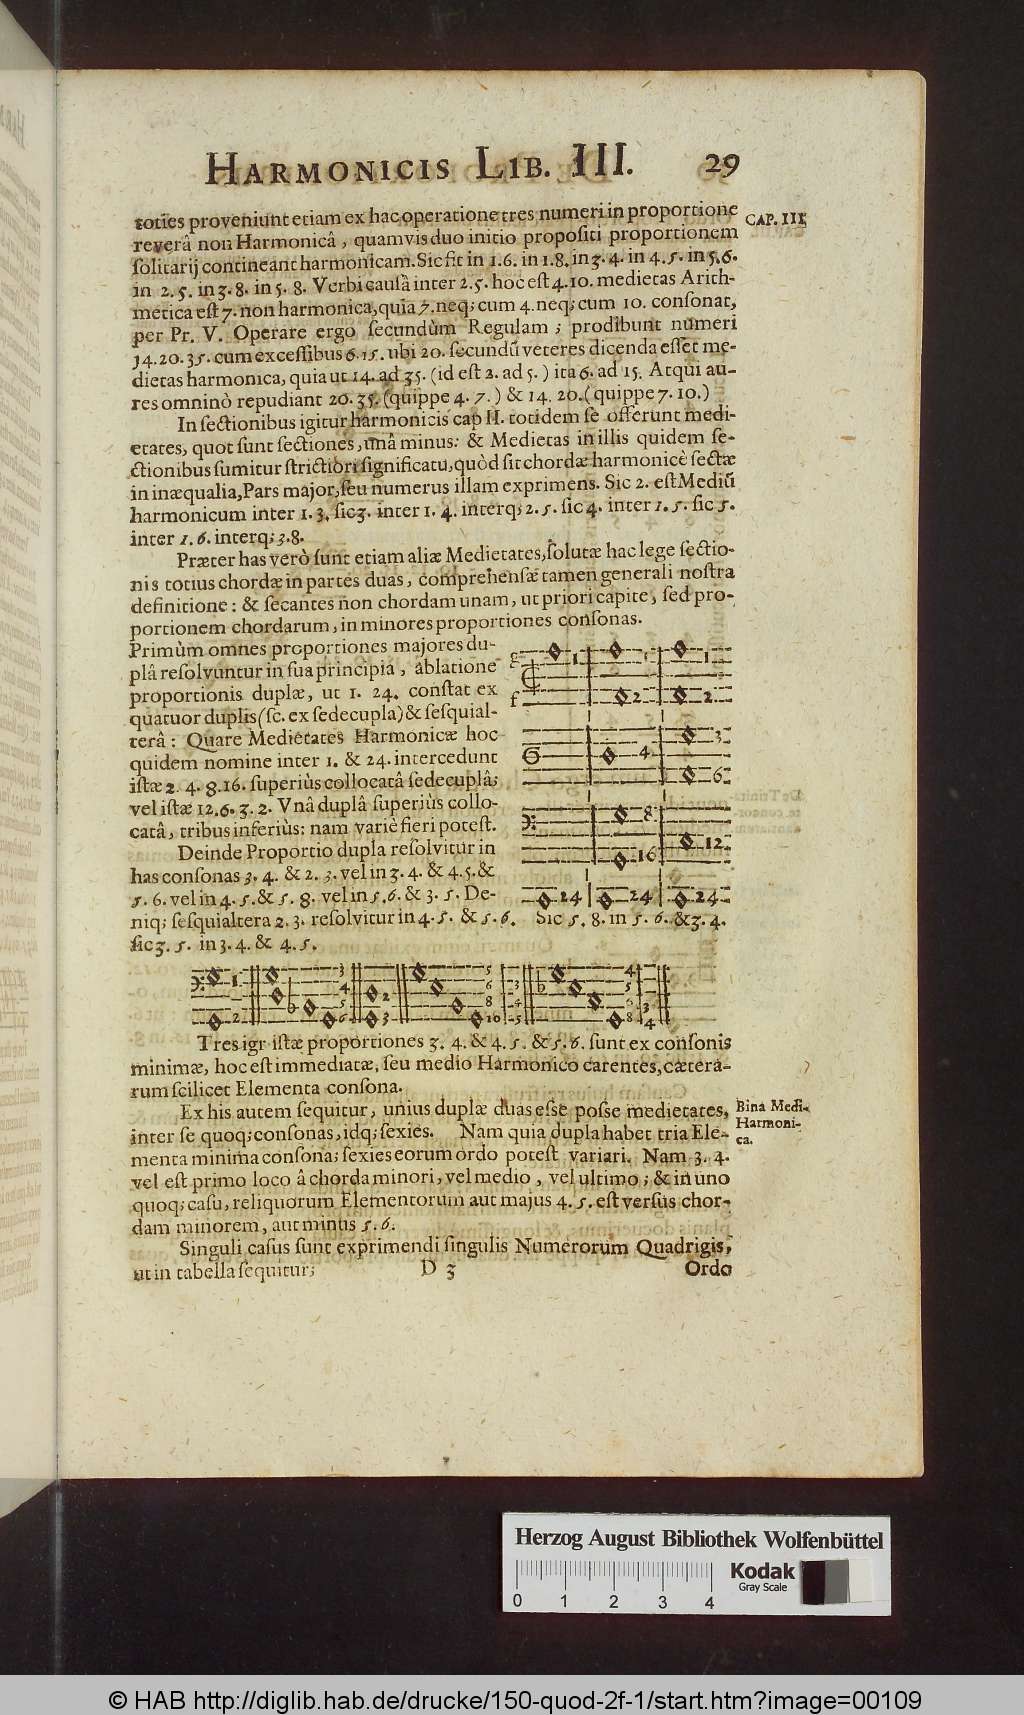 HARMONICIS LIB. III. 29
CAP. III.
toties proveniunt etiam ex hac operatione tres numeri in proportione
reverâ non Harmonicâ, quamvis duo initio propositi proportionem
solitarij contineant harmonicam. Sic fit in 1.6. in 1.8. in 3. 4. in 4. 5. in 5. 6.
in 2. 5. in 3. 8. in 5. 8. Verbi causâ inter 2. 5. hoc est 4. 10. medietas Arith-
metica est 7. non harmonica, quia 7. neq; cum 4. neq; cum 10. consonat,
per Pr. V. Operare ergo secundùm Regulam; prodibunt numeri
14. 20. 35. cum excessibus 6. 15. ubi 20. secundũ veteres dicenda esset me-
dietas harmonica, quia ut 14. ad 35. (id est 2. ad 5.) ita 6. ad 15. Atqui au-
res omninò repudiant 20. 35. (quippe 4. 7.) & 14. 20. (quippe 7. 10.)
In sectionibus igitur harmonicis cap II. totidem se offerunt medi-
etates, quot sunt sectiones, unâ minus: & Medietas in illis quidem se-
ctionibus sumitur strictiori significatu, quòd sit chordæ harmonicè sectæ
in inæqualia, Pars major, seu numerus illam exprimens. Sic 2. est Mediũ
harmonicum inter 1. 3. sic 3. inter 1. 4. interq; 2. 5. sic 4. inter 1. 5. sic 5.
inter 1. 6. interq; 3. 8.
Præter has verò sunt etiam aliæ Medietates, solutæ hac lege sectio-
nis totius chordæ in partes duas, comprehensæ tamen generali nostra
definitione: & secantes non chordam unam, ut priori capite, sed pro-
portionem chordarum, in minores proportiones consonas.
Primùm omnes proportiones majores du-
plâ resolvuntur in sua principia, ablatione
proportionis duplæ, ut 1. 24. constat ex
quatuor duplis (sc. ex sedecupla) & sesquial-
terâ: Quare Medietates Harmonicæ hoc
quidem nomine inter 1. & 24. intercedunt
istæ 2. 4. 8. 16. superiùs collocatâ sedecuplâ;
vel istæ 12. 6. 3. 2. Vnâ duplâ superiùs collo-
catâ, tribus inferiùs: nam variè fieri potest.
g 1 1 1
f 2 2
3
G 4
6
8
12
16
24 24 24
Deinde Proportio dupla resolvitur in
has consonas 3. 4. & 2. 3. vel in 3. 4. & 4. 5. &
5. 6. vel in 4. 5. & 5. 8. vel in 5. 6. & 3. 5. De-
niq; sesquialtera 2. 3. resolvitur in 4. 5. & 5. 6. Sic 5. 8. in 5. 6. & 3. 4.
sic 3. 5. in 3. 4. & 4. 5.
1 3 5 4
4 2 6 3 5
5 8 4 6 3
2 6 3 10 5 8 4
Tres igr istæ proportiones 3. 4. & 4. 5. & 5. 6. sunt ex consonis
minimæ, hoc est immediatæ, seu medio Harmonico carentes, cætera-
rum scilicet Elementa consona.
Ex his autem sequitur, unius duplæ duas esse posse medietates,
inter se quoq; consonas, idq; sexies. Nam quia dupla habet tria Ele-
menta minima consona; sexies eorum ordo potest variari. Nam 3. 4.
vel est primo loco â chorda minori, vel medio, vel ultimo; & in uno
quoq; casu, reliquorum Elementorum aut majus 4. 5. est versùs chor-
dam minorem, aut minus 5. 6.
Bina Medi-
Harmoni-
ca.
Singuli casus sunt exprimendi singulis Numerorum Quadrigis,
ut in tabella sequitur;
D 3 Ordo
Herzog August Bibliothek Wolfenbüttel
Kodak
Gray Scale
0 1 2 3 4
© HAB http://diglib.hab.de/drucke/150-quod-2f-1/start.htm?image=00109